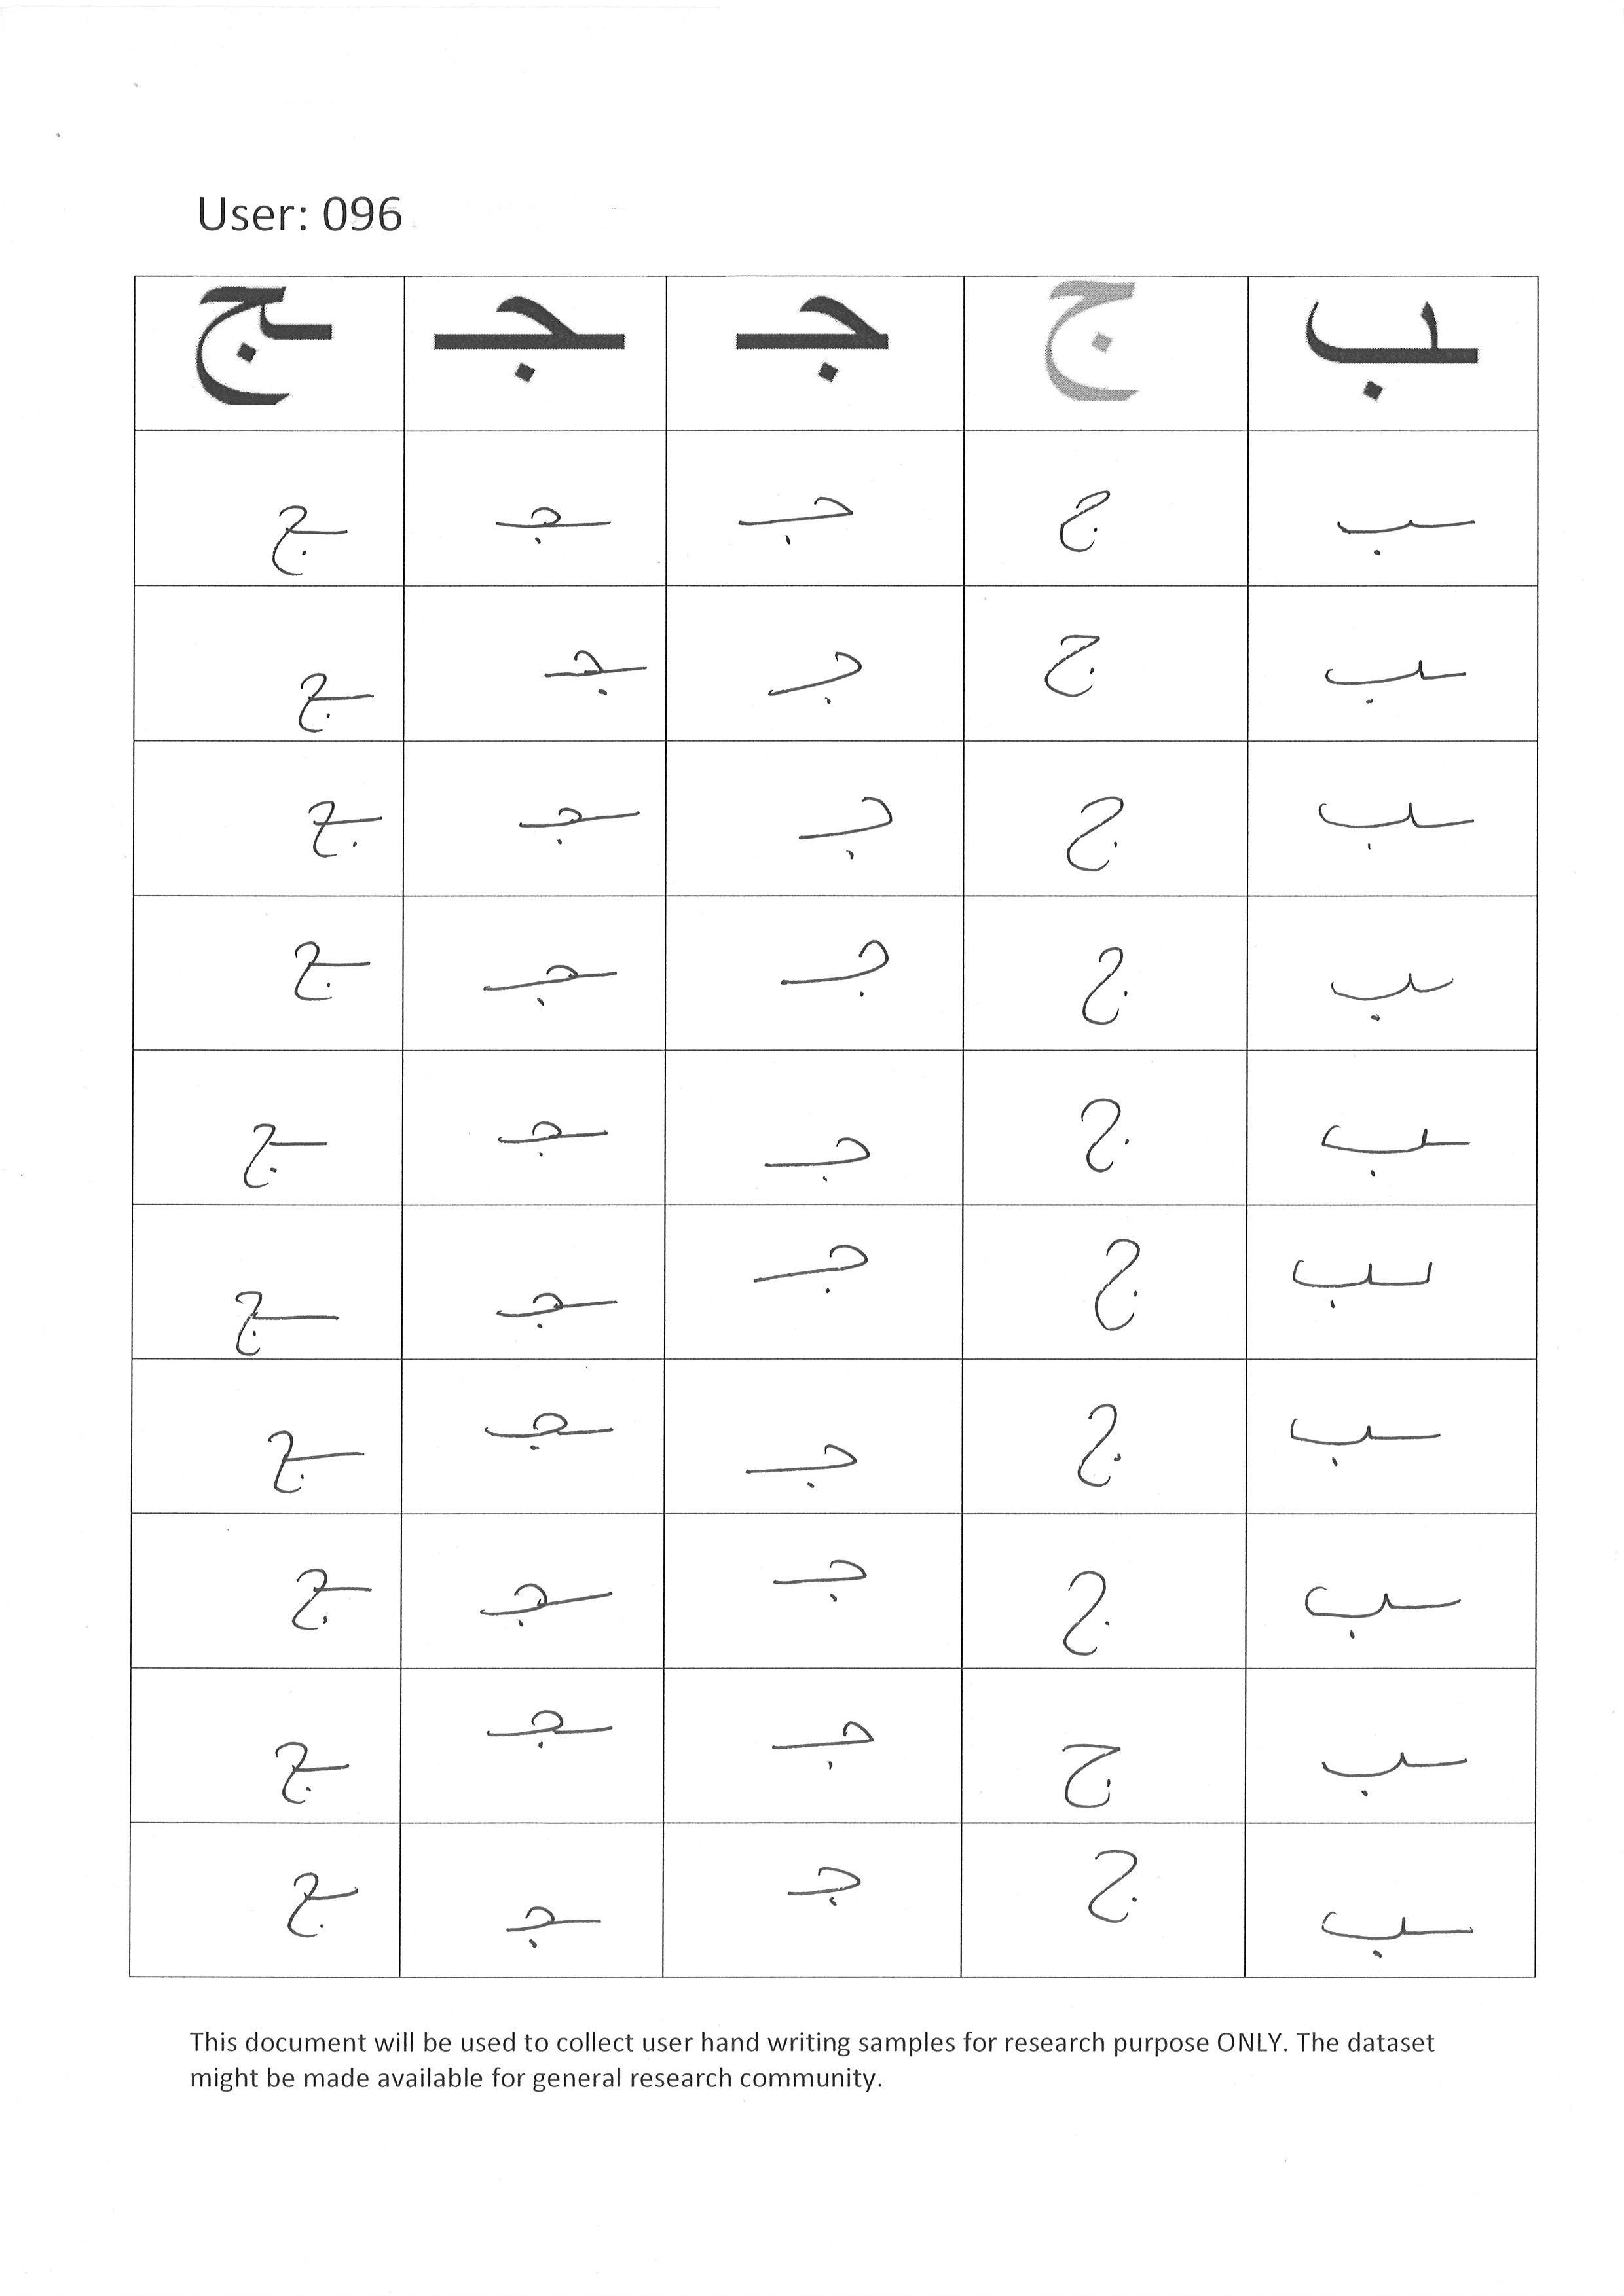 User: 096
ـب ج جـ ـجـ ـج
ـب ج جـ ـجـ ـج
ـب ج جـ ـجـ ـج
ـب ج جـ ـجـ ـج
ـب ج جـ ـجـ ـج
ـب ج جـ ـجـ ـج
ـب ج جـ ـجـ ـج
ـب ج جـ ـجـ ـج
ـب ج جـ ـجـ ـج
ـب ج جـ ـجـ ـج
ـب ج جـ ـجـ ـج
This document will be used to collect user hand writing samples for research purpose ONLY. The dataset
might be made available for general research community.